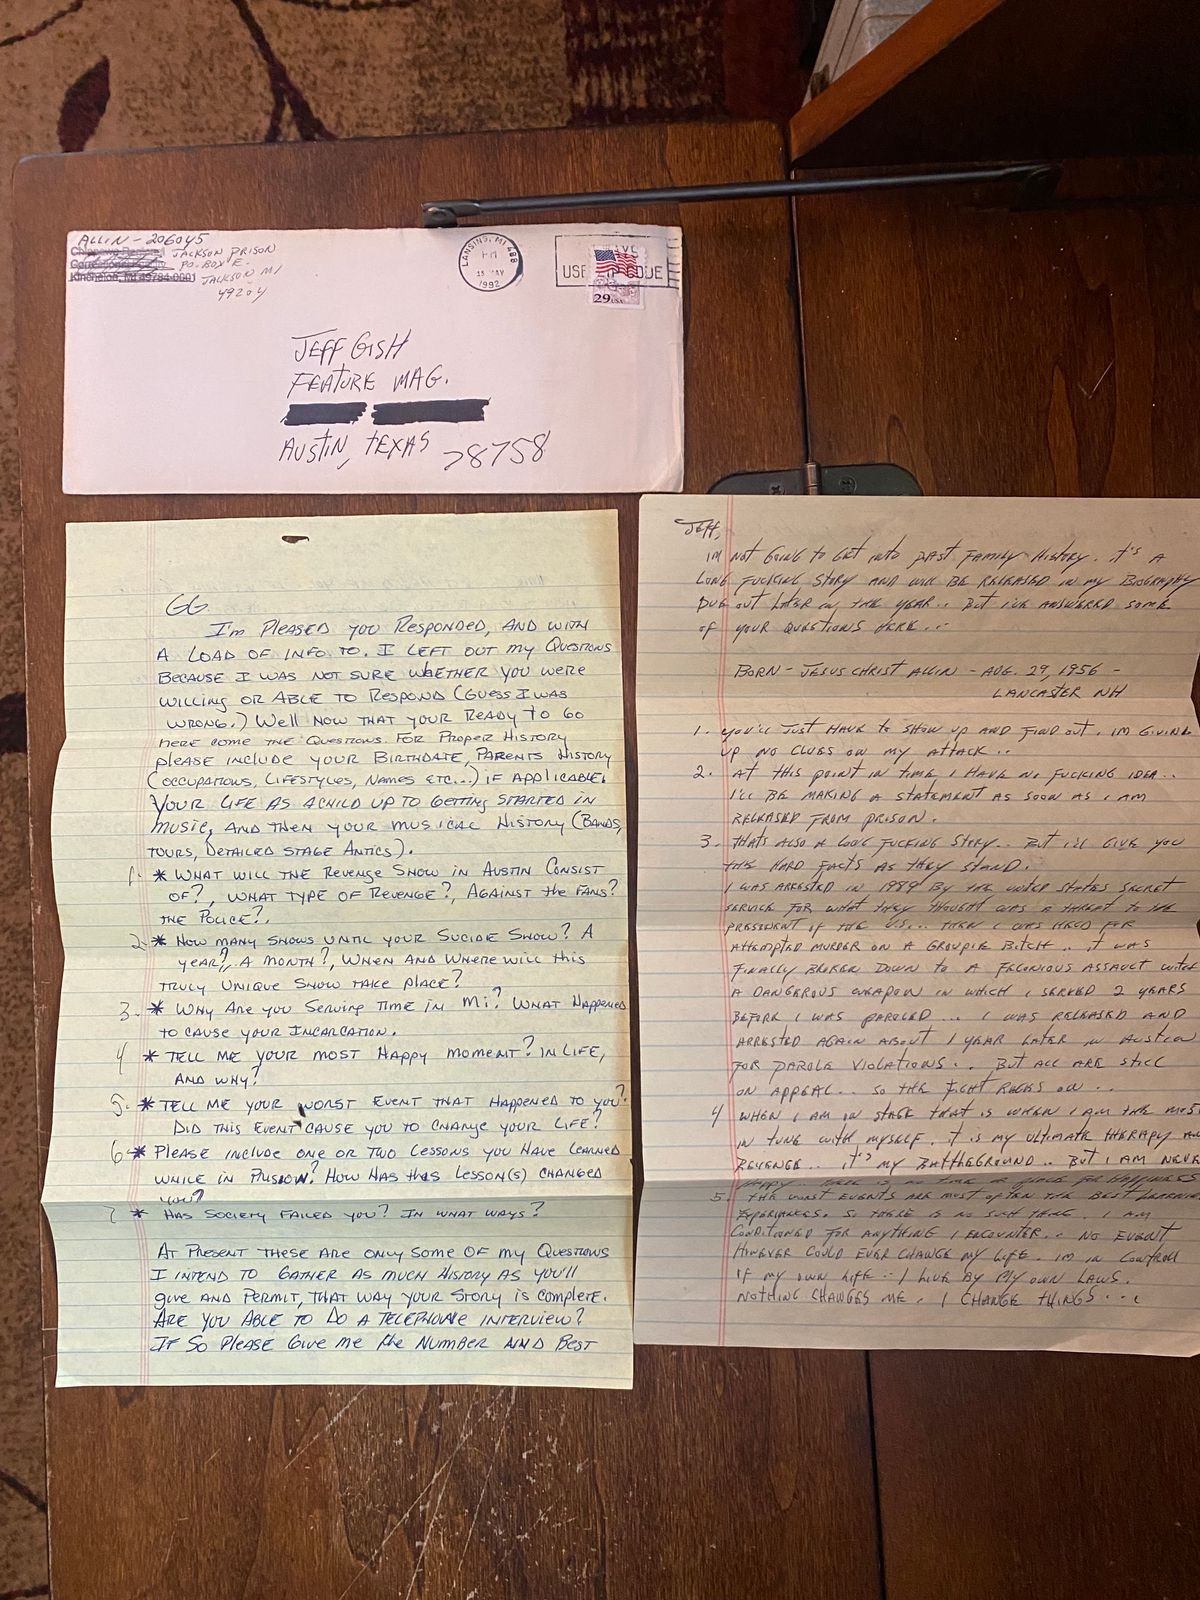 ALLIN - 206045
JACKSON PRISON
PO-BOX E.
Kincheloe, MI 49784-0001 JACKSON MI
49204
LANSING, MI 488
PM
15 MAY
1992
USE ZIP CODE
29 USA
JEFF GISH
FEATURE MAG.
AUSTIN, TEXAS 78758
GG.
I'm PLEASED YOU RESPONDED, AND WITH
A LOAD OF INFO TO. I LEFT OUT MY QUESTIONS
BECAUSE I WAS NOT SURE WHETHER YOU WERE
WILLING OR ABLE TO RESPOND (GUESS I WAS
WRONG.) WELL NOW THAT YOUR READY TO GO
HERE COME THE QUESTIONS. FOR PROPER HISTORY
PLEASE INCLUDE YOUR BIRTHDATE, PARENTS HISTORY
(OCCUPATIONS, LIFESTYLES, NAMES ETC...) IF APPLICABLE.
YOUR LIFE AS A CHILD UP TO GETTING STARTED IN
MUSIC, AND THEN YOUR MUSICAL HISTORY (BANDS,
TOURS, DETAILED STAGE ANTICS).
1. * WHAT WILL THE REVENGE SHOW IN AUSTIN CONSIST
OF?, WHAT TYPE OF REVENGE?, AGAINST THE FANS?
THE POLICE?.
2. * HOW MANY SHOWS UNTIL YOUR SUCIDE SHOW? A
YEAR?, A MONTH?, WHEN AND WHERE WILL THIS
TRULY UNIQUE SHOW TAKE PLACE?
3. * WHY ARE YOU SERVING TIME IN MI? WHAT HAPPENED
TO CAUSE YOUR INCARCATION.
4 * TELL ME YOUR MOST HAPPY MOMENT? IN LIFE,
AND WHY?
5. * TELL ME YOUR WORST EVENT THAT HAPPENED TO YOU?
DID THIS EVENT CAUSE YOU TO CHANGE YOUR LIFE?
6 * PLEASE INCLUDE ONE OR TWO LESSONS YOU HAVE LEARNED
WHILE IN PRISION? HOW HAS THIS LESSON(S) CHANGED
YOU?
7 * HAS SOCIETY FAILED YOU? IN WHAT WAYS?
AT PRESENT THESE ARE ONLY SOME OF MY QUESTIONS
I INTEND TO GATHER AS MUCH HISTORY AS YOU'LL
GIVE AND PERMIT, THAT WAY YOUR STORY IS COMPLETE.
ARE YOU ABLE TO DO A TELEPHONE INTERVIEW?
IF SO PLEASE GIVE ME THE NUMBER AND BEST
JEFF,
IM NOT GOING TO GET INTO PAST FAMILY HISTORY. IT'S A
LONG FUCKING STORY AND WILL BE RELEASED IN MY BIOGRAPHY
DUE OUT LATER IN THE YEAR.. BUT I'VE ANSWERED SOME
OF YOUR QUESTIONS HERE...
BORN - JESUS CHRIST ALLIN - AUG. 29, 1956 -
LANCASTER NH
1. YOU'LL JUST HAVE TO SHOW UP AND FIND OUT. IM GIVING
UP NO CLUES ON MY ATTACK..
2. AT THIS POINT IN TIME I HAVE NO FUCKING IDEA..
I'LL BE MAKING A STATEMENT AS SOON AS I AM
RELEASED FROM PRISON.
3. THATS ALSO A LONG FUCKING STORY.. BUT I'LL GIVE YOU
THE HARD FACTS AS THEY STAND.
I WAS ARRESTED IN 1989 BY THE UNITED STATES SECRET
SERVICE FOR WHAT THEY THOUGHT WAS A THREAT TO THE
PRESIDENT OF THE US... THEN I WAS HELD FOR
ATTEMPTED MURDER ON A GROUPIE BITCH.. IT WAS
FINALLY BROKEN DOWN TO A FELONIOUS ASSAULT WITH
A DANGEROUS WEAPON IN WHICH I SERVED 2 YEARS
BEFORE I WAS PAROLED... I WAS RELEASED AND
ARRESTED AGAIN ABOUT 1 YEAR LATER IN AUSTIN
FOR PAROLE VIOLATIONS.. BUT ALL ARE STILL
ON APPEAL... SO THE FIGHT ROCKS ON..
4 WHEN I AM ON STAGE THAT IS WHEN I AM THE MOST
IN TUNE WITH MYSELF. IT IS MY ULTIMATE THERAPY AND
REVENGE.. IT'S MY BATTLEGROUND.. BUT I AM NEVER
HAPPY.. THERE IS NO TIME OR PLACE FOR HAPPINESS
5. THE WORST EVENTS ARE MOST OFTEN THE BEST LEARNING
EXPERIENCES. SO THERE IS NO SUCH THING. I AM
CONDITIONED FOR ANYTHING I ENCOUNTER.. NO EVENT
HOWEVER COULD EVER CHANGE MY LIFE. IM IN CONTROLL
IF MY OWN LIFE.. I LIVE BY MY OWN LAWS.
NOTHING CHANGES ME. I CHANGE THINGS...